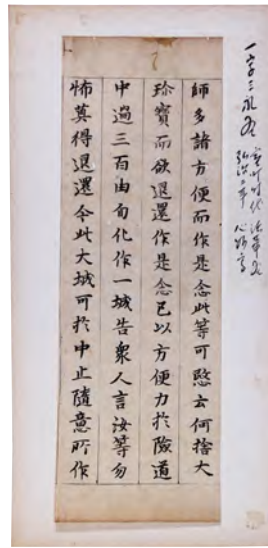 一字三礼
室町時代 法華
弘治二年
師多諸方便而作是念此等可愍云何捨大
珎寶而欲退還作是念已以方便力於險道
中過三百由旬化作一城告衆人言汝等勿
怖莫得退還今此大城可於中止隨意所作